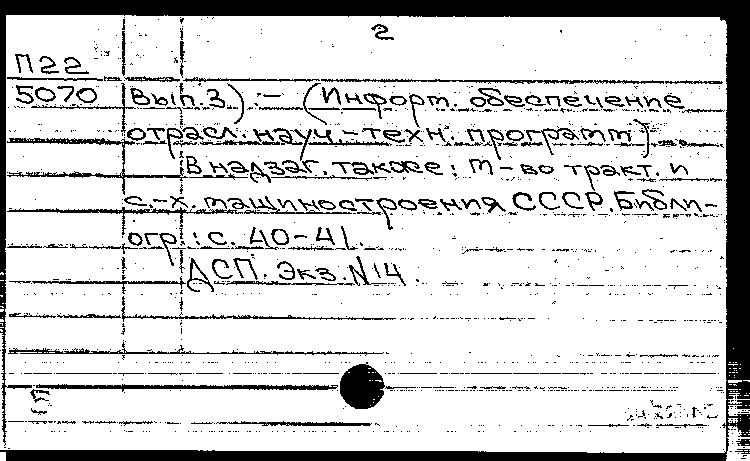 2
П22
5070 Вып. 3). — (Информ. обеспечение
отрасл. науч.-техн. программ)
В надзаг. также: М-во тракт. и
с.-х. машиностроения СССР. Библи-
огр.: с. 40-41.
ДСП. Экз. №14.